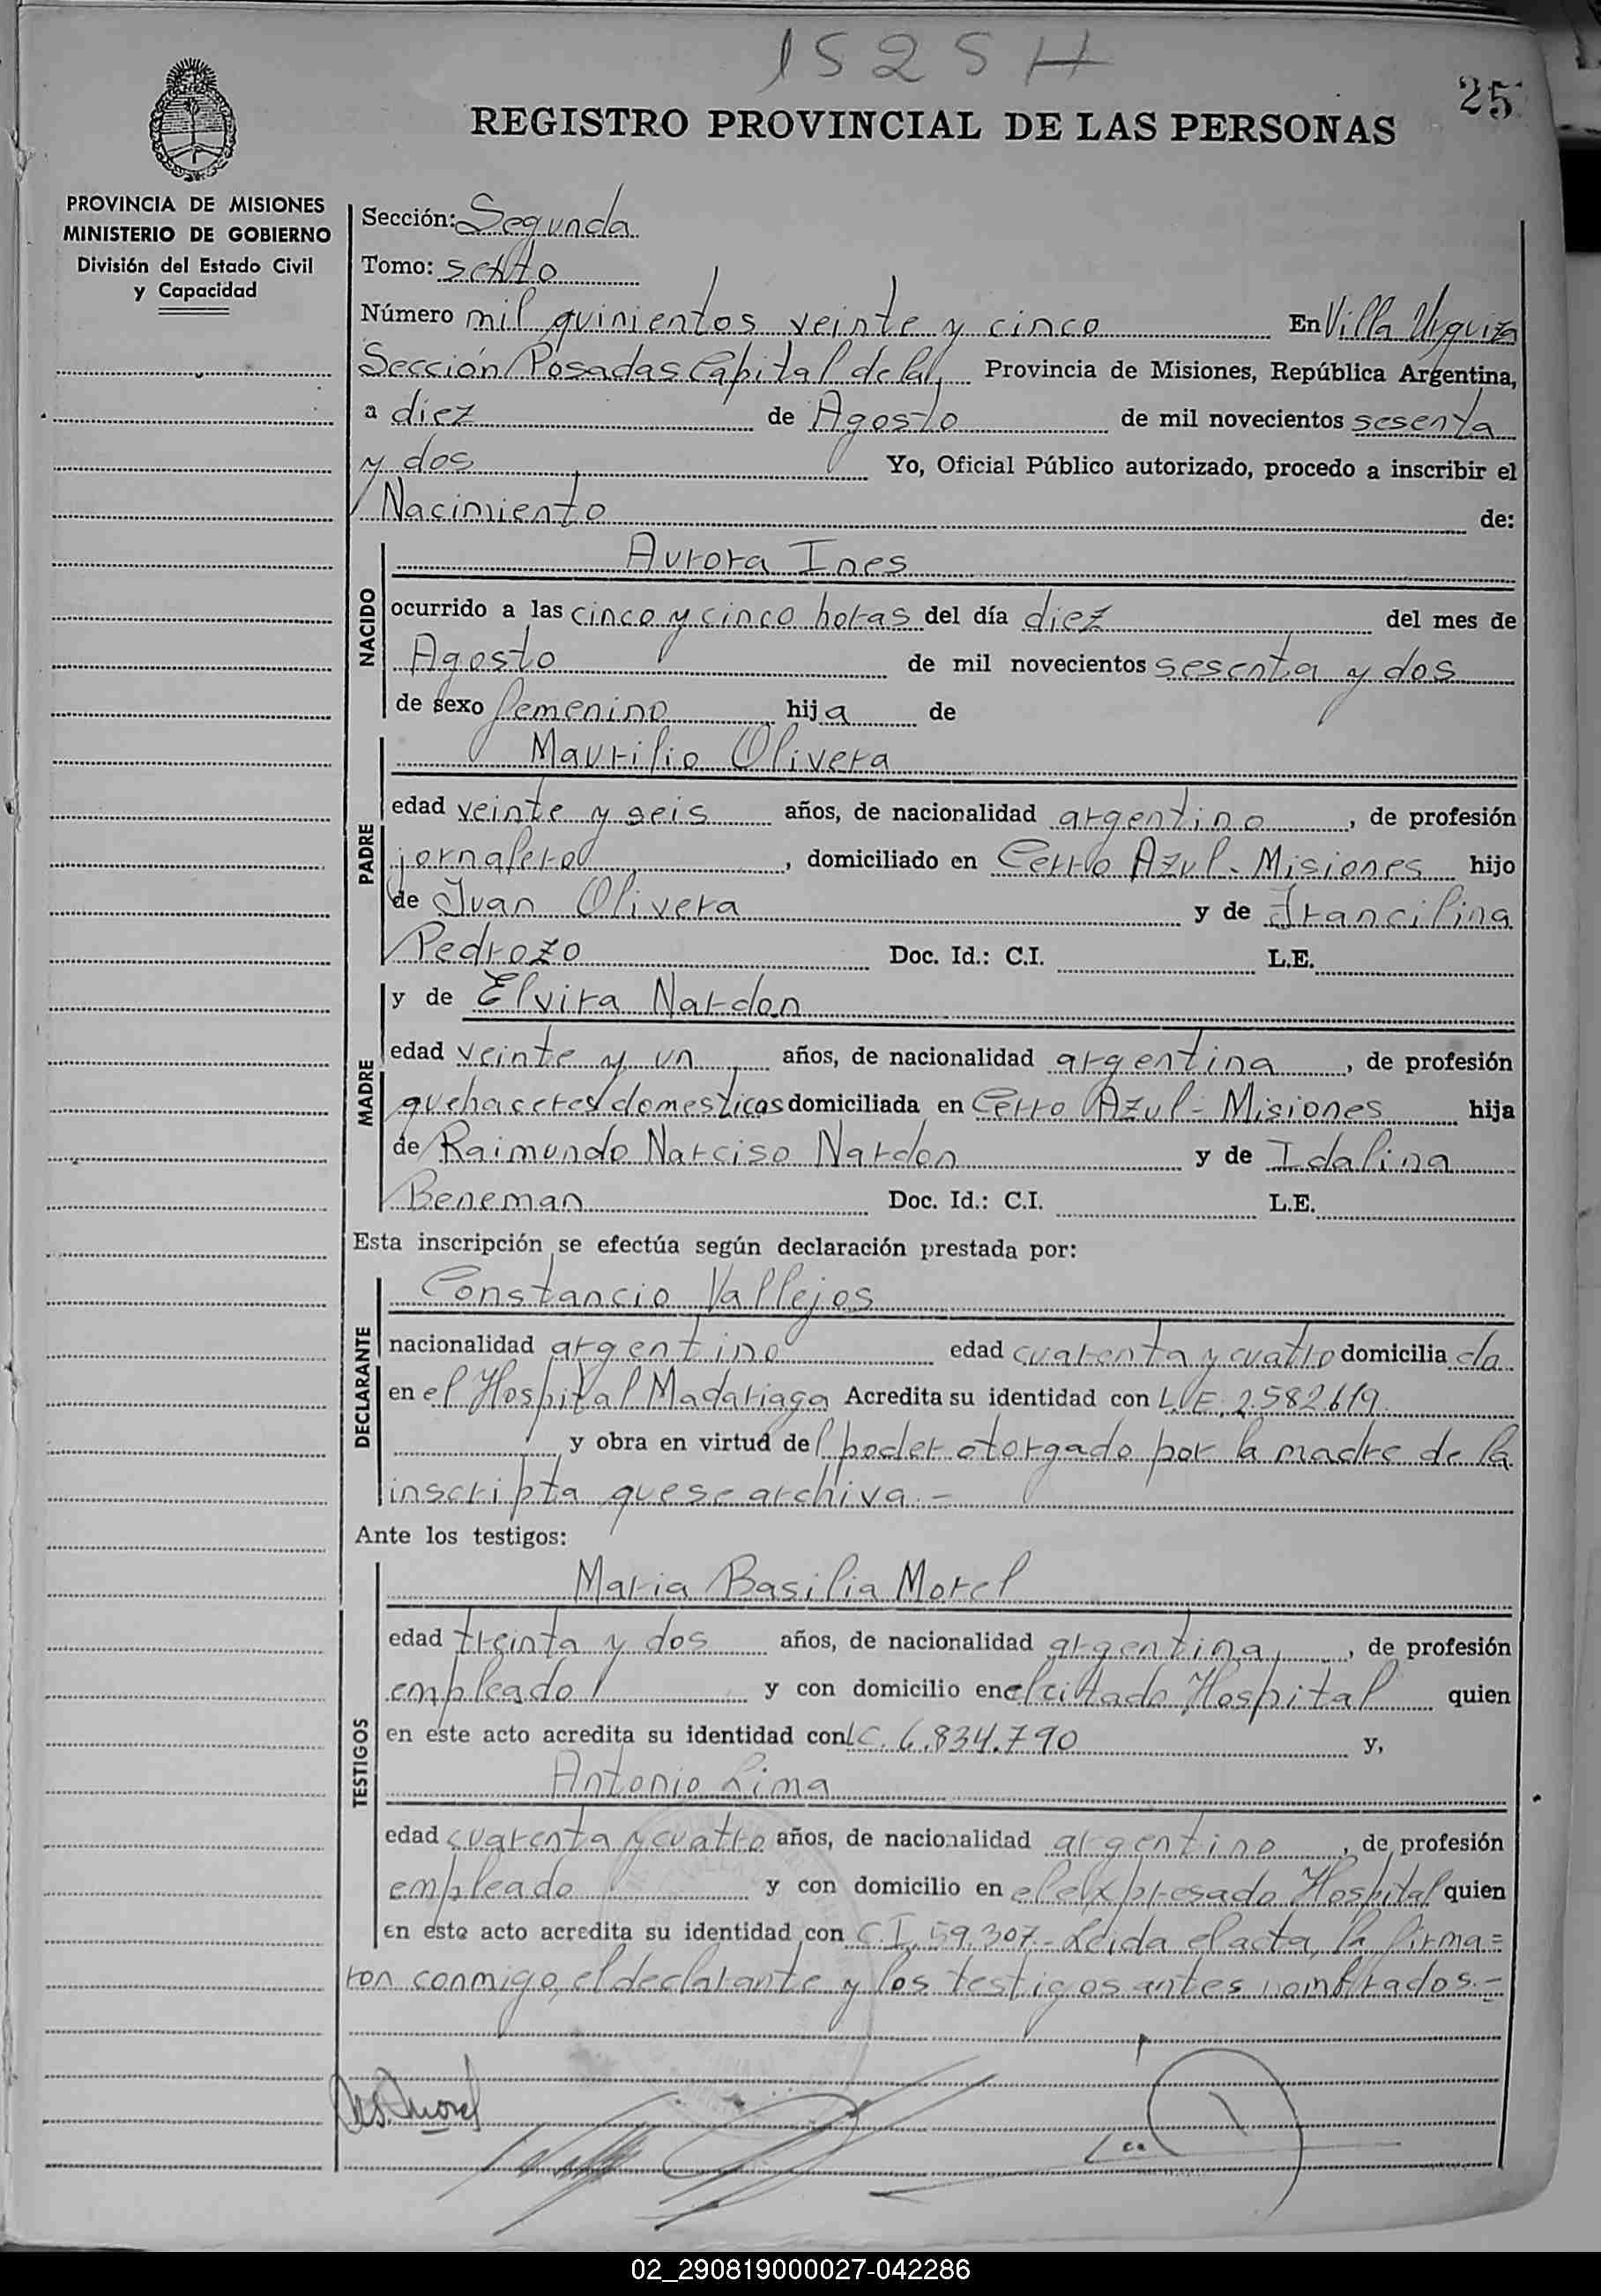 1525 H
25
REGISTRO PROVINCIAL DE LAS PERSONAS
PROVINCIA DE MISIONES
MINISTERIO DE GOBIERNO
División del Estado Civil
y Capacidad
Sección: Segunda
Tomo: sexto
Número mil quinientos veinte y cinco En Villa Urquiza
Sección Posadas Capital de la, Provincia de Misiones, República Argentina,
a diez de Agosto de mil novecientos sesenta
y dos Yo, Oficial Público autorizado, procedo a inscribir el
Nacimiento de:
NACIDO
Aurora Ines
ocurrido a las cinco y cinco horas del día diez del mes de
Agosto de mil novecientos sesenta y dos
de sexo femenino hija de
PADRE
Maurilio Olivera
edad veinte y seis años, de nacionalidad argentino, de profesión
jornalero, domiciliado en Cerro Azul - Misiones hijo
de Juan Olivera y de Francilina
Pedrozo Doc. Id.: C.I. L.E.
MADRE
y de Elvira Nardon
edad veinte y un años, de nacionalidad argentina, de profesión
quehaceres domesticos domiciliada en Cerro Azul - Misiones hija
de Raimundo Narciso Nardon y de Idalina
Beneman Doc. Id.: C.I. L.E.
Esta inscripción se efectúa según declaración prestada por:
DECLARANTE
Constancio Vallejos
nacionalidad argentino edad cuarenta y cuatro domicilia do
en el Hospital Madariaga Acredita su identidad con L.E. 2.582.619
y obra en virtud del poder otorgado por la madre de la
inscripta que se archiva.-
Ante los testigos:
TESTIGOS
Maria Basilia Morel
edad treinta y dos años, de nacionalidad argentina, de profesión
empleado y con domicilio en el citado Hospital quien
en este acto acredita su identidad con LC. 6.834.790 y,
Antonio Lima
edad cuarenta y cuatro años, de nacionalidad argentino, de profesión
empleado y con domicilio en el expresado Hospital quien
en este acto acredita su identidad con C.I. 59.307.- Leida el acta, la firma=
ron conmigo, el declarante y los testigos antes nombrados.-
Morel
02_290819000027-042286